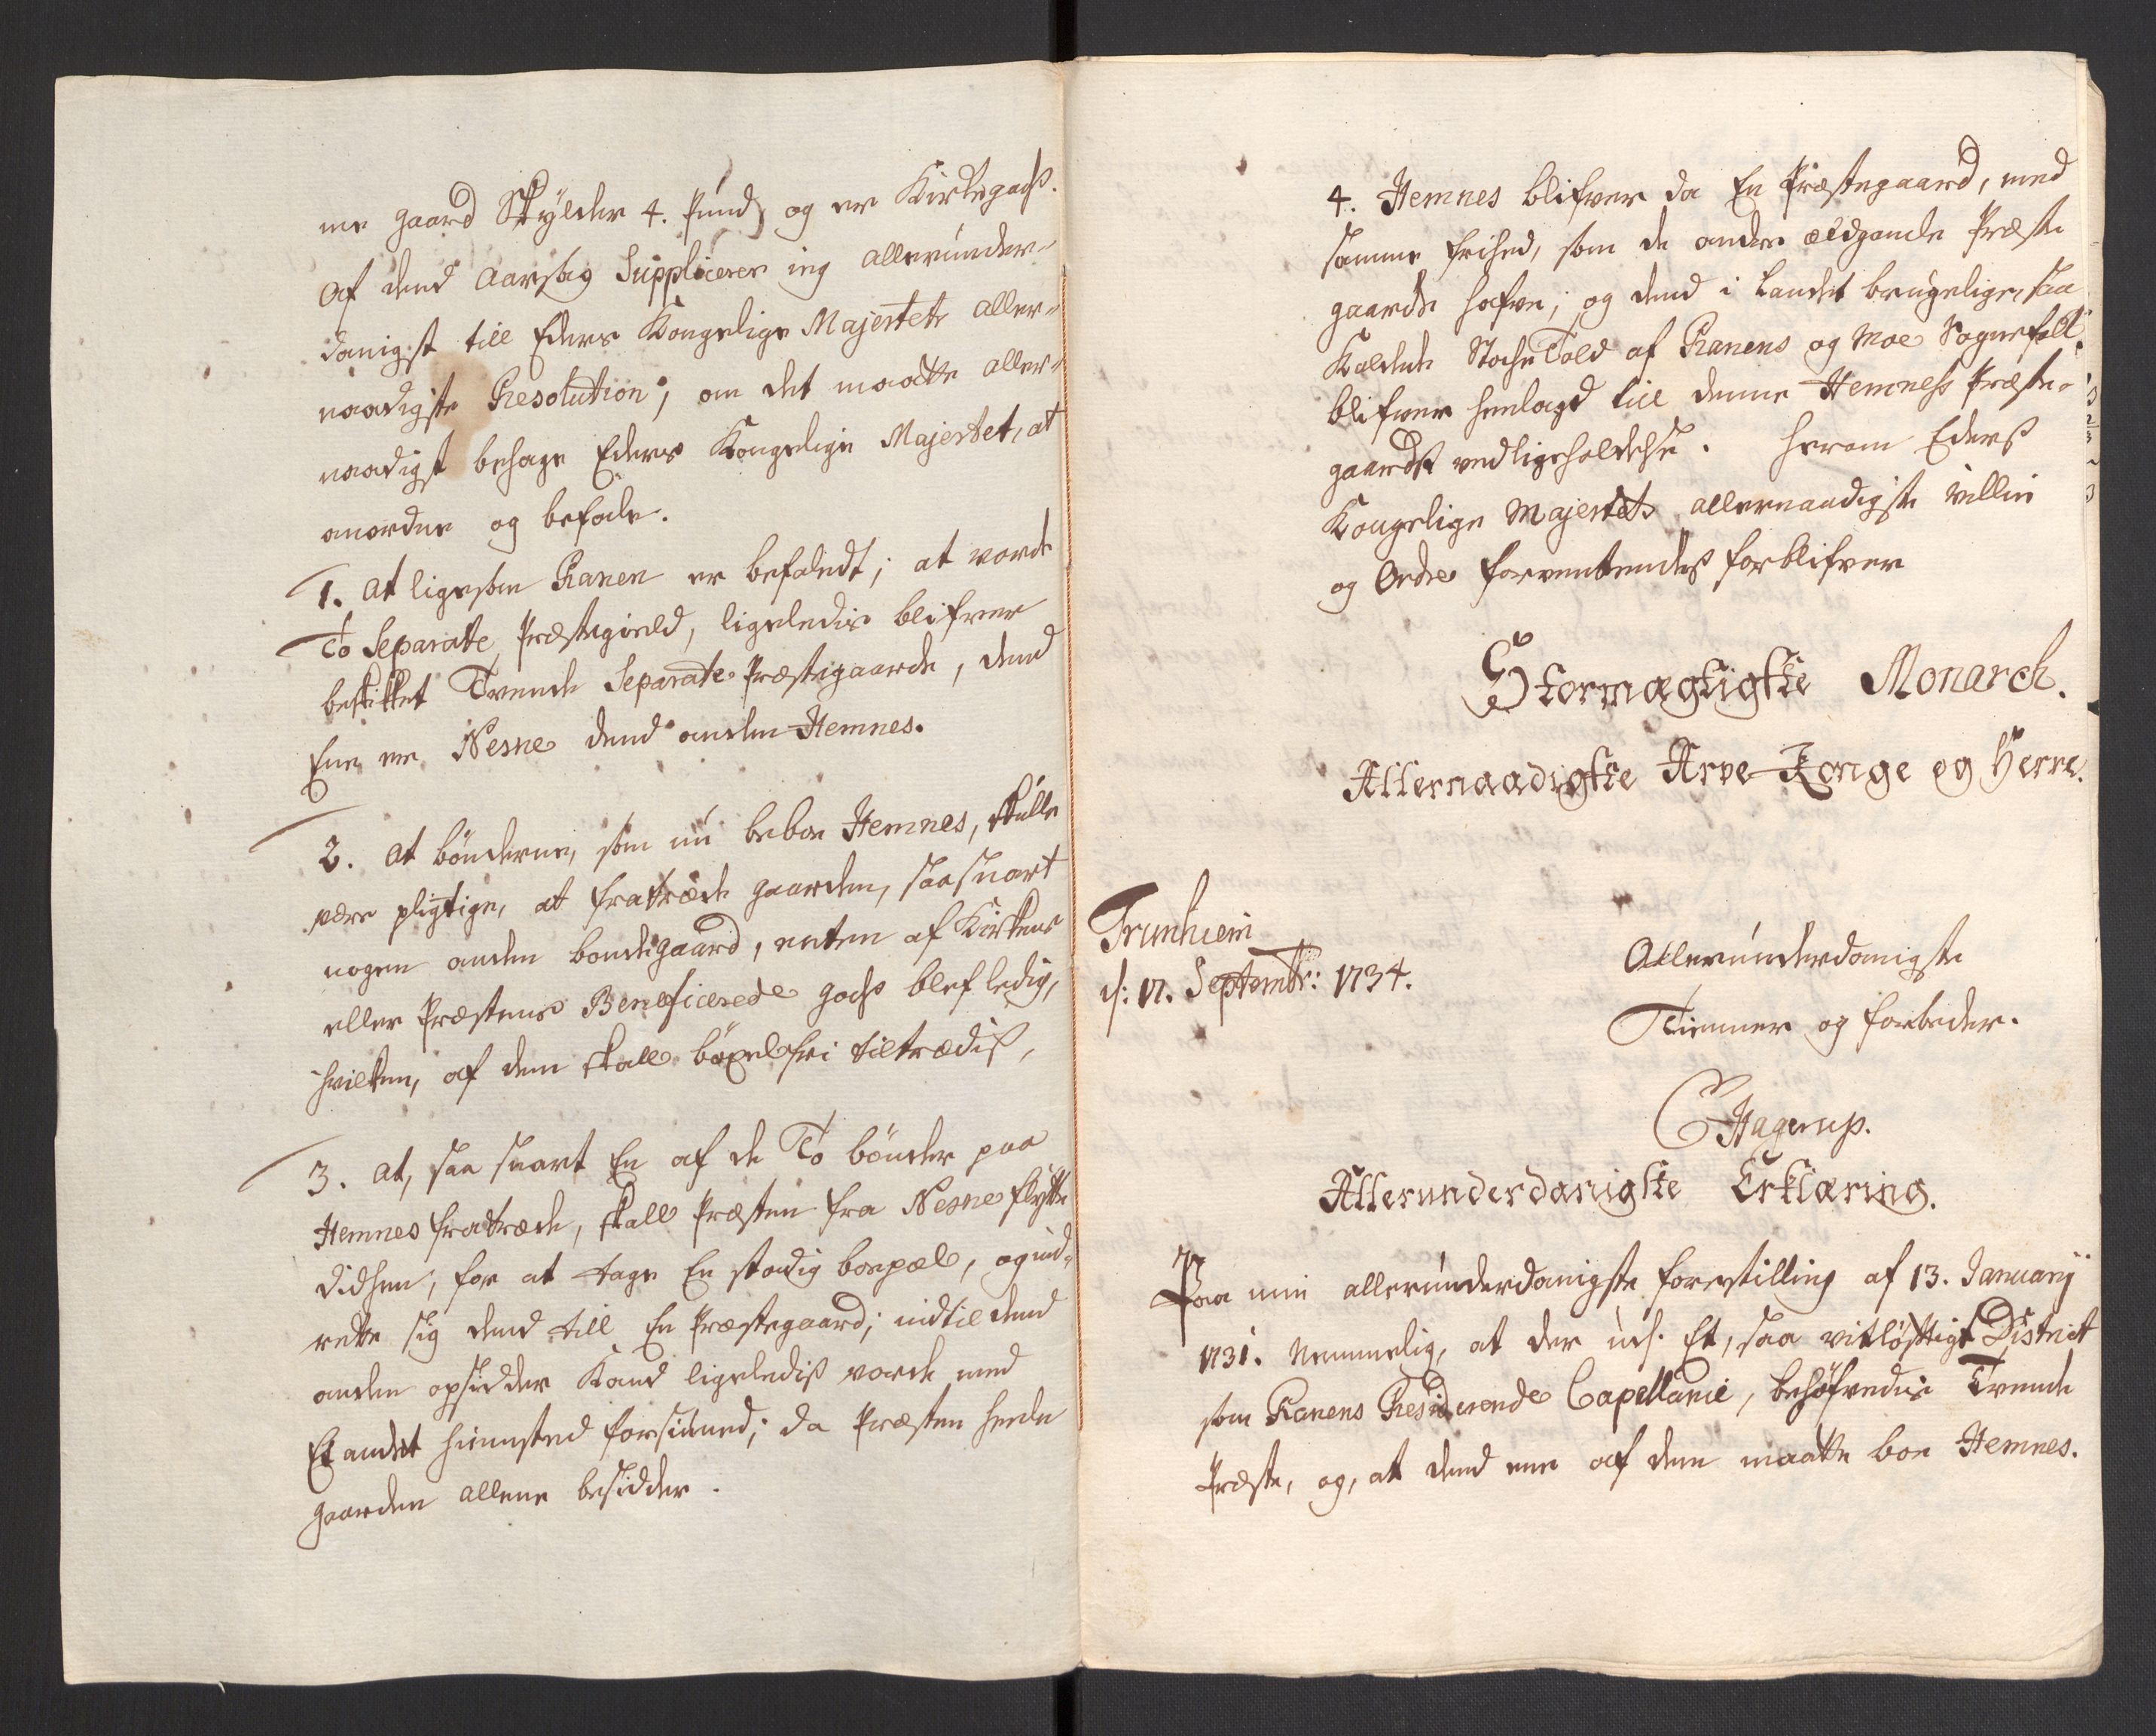 me gaard Skylder 4. Pund, og er Kirkegods.
Af dend aarsag Supplicerer ieg allerunder-
danigst till Eders Kongelige Majestets aller-
naadigste Resolution, om det maatte aller-
naadigst behage Eders Kongelige Majestet, at
anordne og befale.
1. At ligesom Ranen er befaledt, at vorde
To Separate Præstegield, ligeledis blifver
beskikket Tvende Separate Præstegaarde, dend
Ene er Nesne dend anden Hemnes.
2. At bönderne, som nu beboe Hemnes, skulle
være pligtige, at fratræde gaarden, saa snart
nogen anden bondegaard, enten af Kirkens
eller Præstens Beneficerede gods blef ledig,
hvilken, af dem skall böxelfri tiltrædis,
3. at, saa snart En af de To bönder paa
Hemnes fratræde, skall Præsten fra Nesne flytte
didhen, for at tage En stadig boepæl, og ind-
rette sig dend till En Præstegaard; indtil dend
anden opsidder Kand ligeledis vorde med
Et andet hiemsted forsiuned; da Præsten heele
gaarden allene besidder.
4. Hemnes blifver da En Præstegaard, med
samme frihed, som de andre ældgamle Præste
gaarde hafve; og dend i Landet brugelige, saa
Kaldede Stocke Told af Ranens og Moe Sognefolk
blifver henlagd till denne Hemness Præste-
gaards vedligeholdelse. herom Eders
Kongelige Majestets allernaadigste Villie
og Ordre forventendes forblifver
Stormægtigste Monarch.
Allernaadigste Arve-Konge og Herre.
Trunhiem
d: 17. Septembr: 1734.
Allerunderdanigste
Tienner og forbeder.
E Hagerup.
Allerunderdanigste Erklæring.
Paa min allerunderdanigste forestilling af 13. Januarij
1731. Nemmelig, at der udj. Et, saa vitlöftigt District
som Ranens Residerende Capellanie, behöfvedis Tvende
Præste, og, at dend ene af dem maatte boe Hemnes.